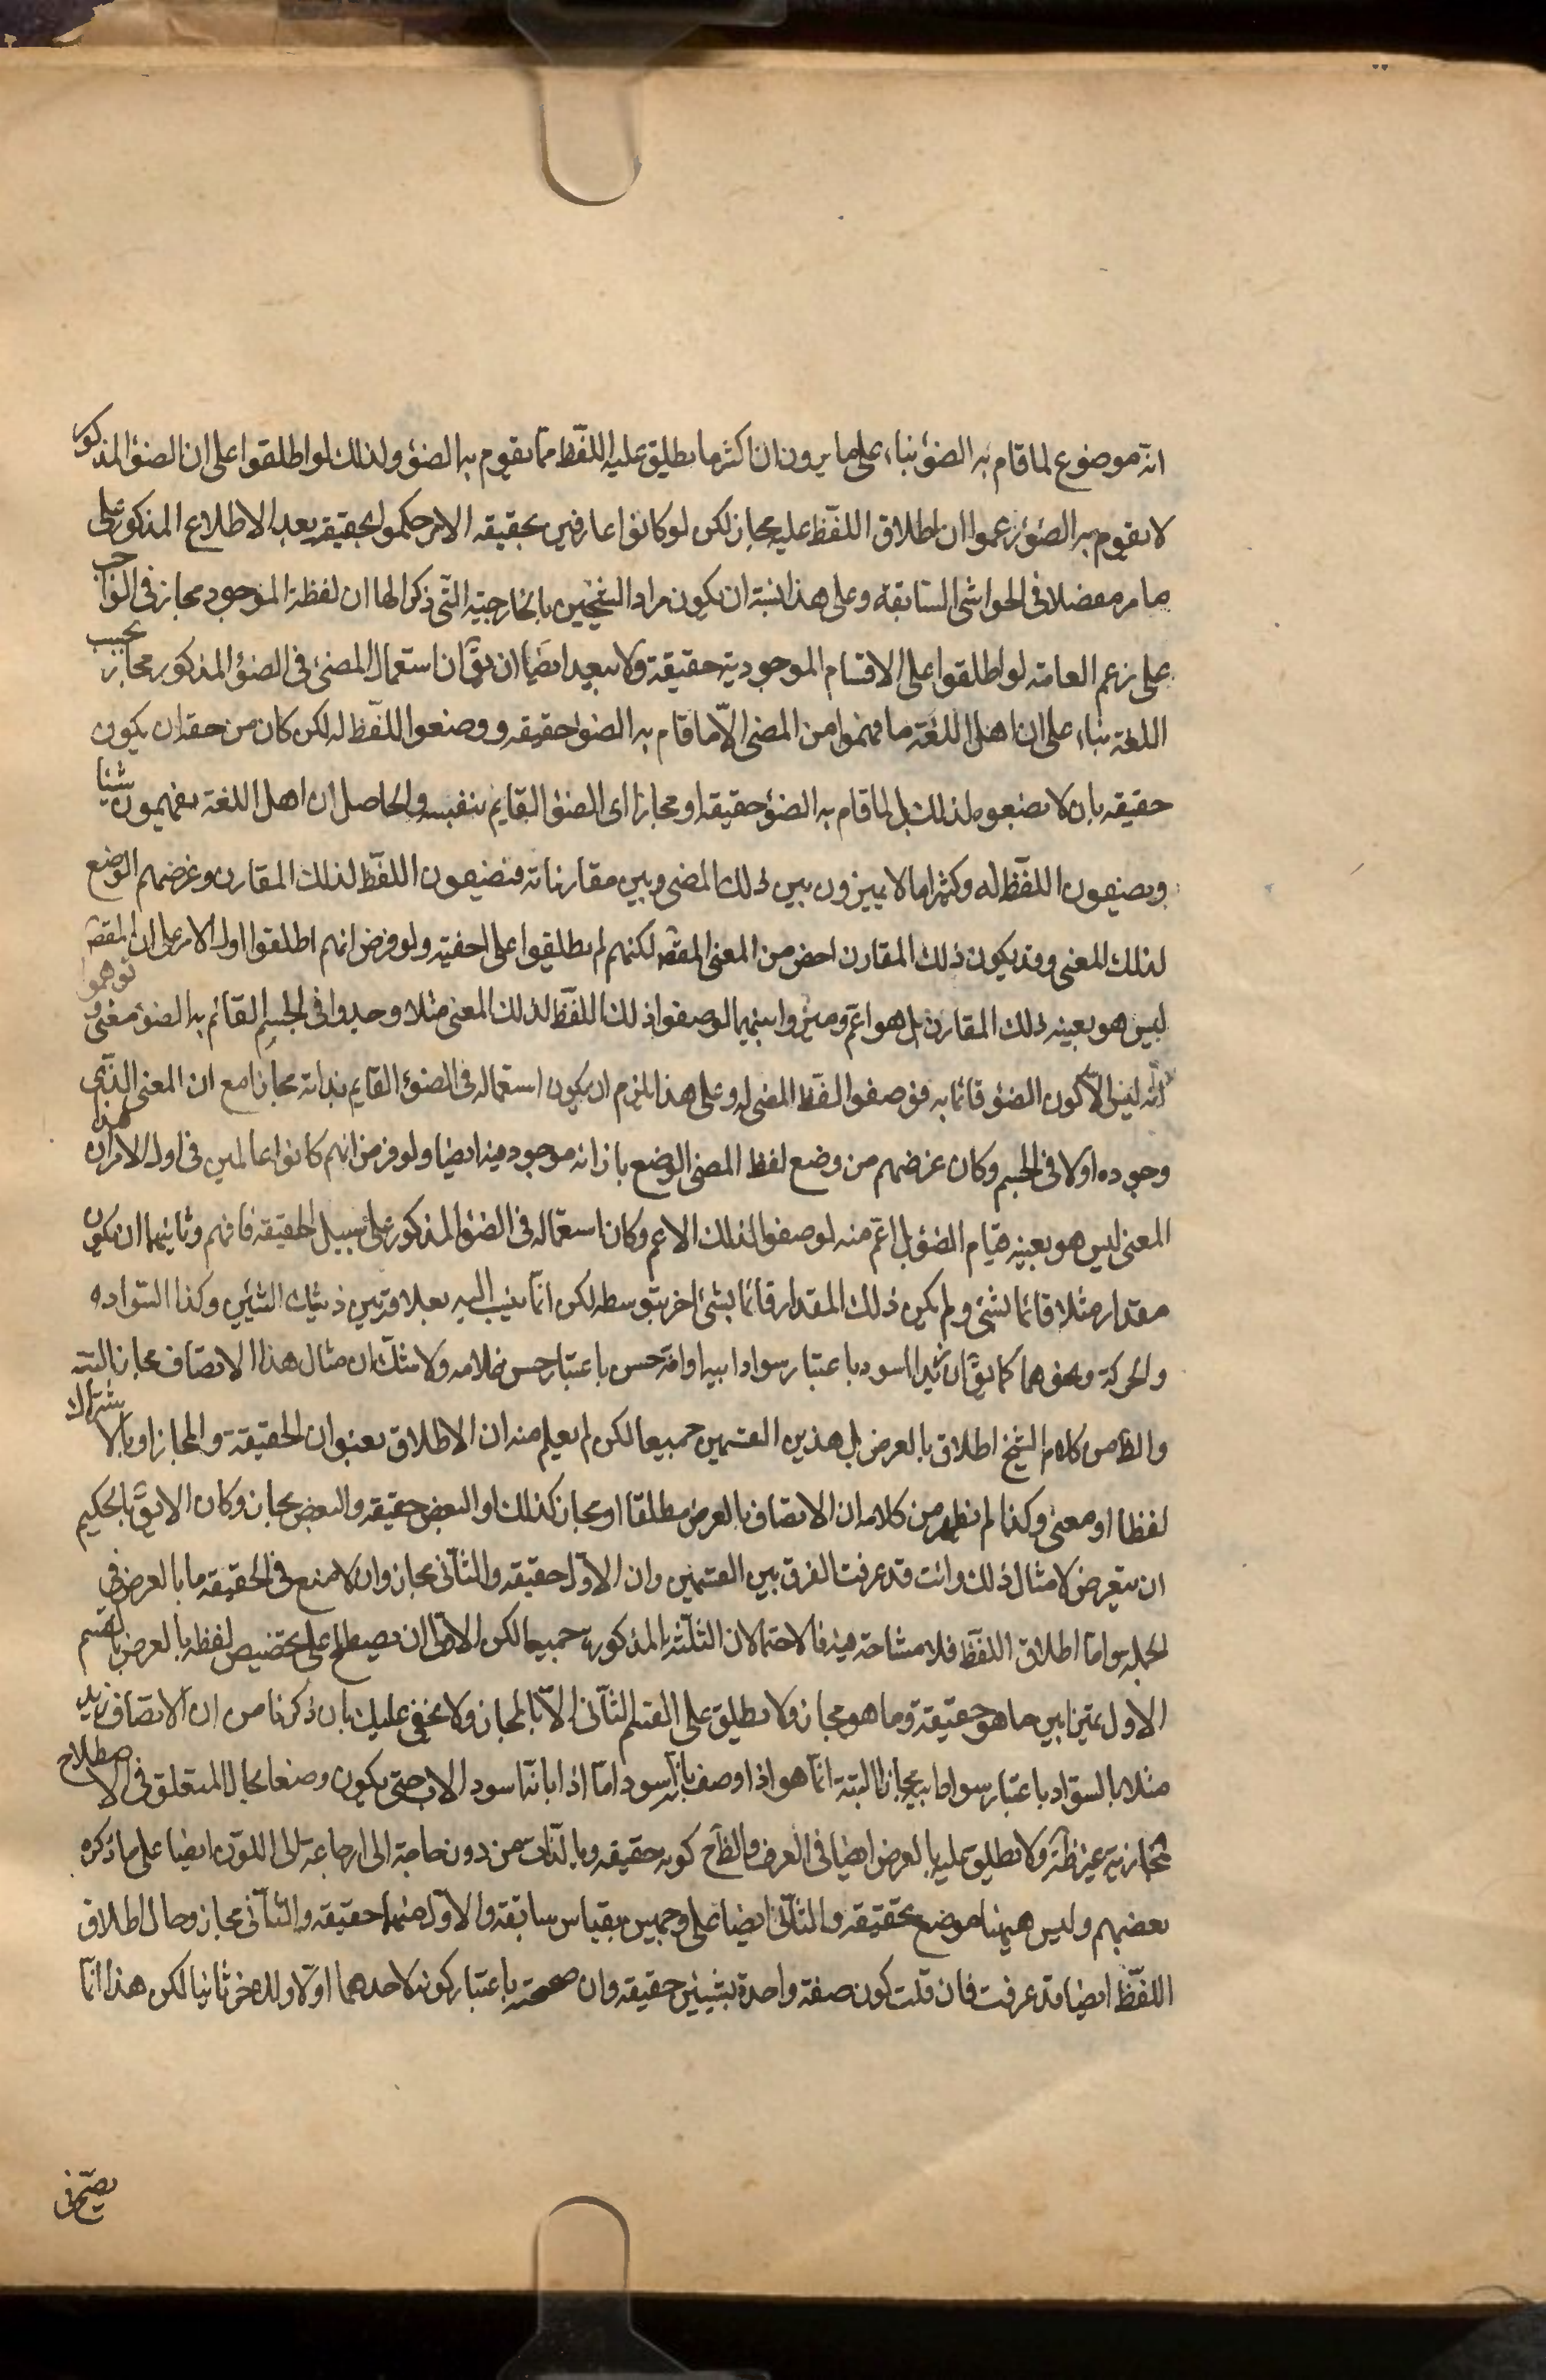 انه موضوع لما قام به الضوء بناء على ما يرون ان اكثر ما يطلق عليه اللفظ مما يقوم به الضوء ولذلك لو اطلقوا على ان الضوء المذكور
لا يقوم به الضوء زعموا ان اطلاق اللفظ عليه مجاز لكن لو كانوا عارفين بحقيقه الامر حكموا بحقيقته بعد الاطلاع المذكور على
ما مر مفصلا فى الحواشى السابقة وعلى هذا ان يكون مراد الشيخين بالخارجية التى ذكرالها ان لفظة الموجود مجاز فى الواجب
على زعم العامة لو اطلقوا على الاقسام الموجودية حقيقة ولا يبعد ايضا ان يقّ ان استعمال المضئ فى الضوء المذكور مجاز بحسب
اللغة بناء على ان اهل اللغة ما فهموا من المضئ الّا ما قام به الضوء حقيقه ووضعوا اللفظ له لكن كان من حقه ان يكون
حقيقه بان لا يضعوه لذلك بل لما قام به الضوء حقيقه او مجازا اى الضوء القايم بنفسه والحاصل ان اهل اللغة يفهمون شيئا
ويضعون اللفظ له وكثيرا ما لا يميزون بين ذلك المعنى وبين مقارناته فيضعون اللفظ لذلك المقارن وغرضهم الوضع
لذلك المعنى وقد يكون ذلك المقارن اخص من المعنى المقصّ لكنهم لم يطلعوا على اخصيته ولو فرض انهم اطلقوا اول الامر على ان المقصّ
ليس هو بعينه ذلك المقارن بل هو اعم وميزوا بينهما لوضعوا ذلك اللفظ لذلك المعنى مثلا وجدوا فى الجسم القائم به الضوء معنى وتوهموا
انّه ليس الّا كون الضوء قائما به فوضعوا لفظ المضئ له وعلى هذا يلزم ان يكون استعماله فى الضوء القايم بذاته مجازا مع ان المعنى الذى
وجوده اولا فى الجسم وكان غرضهم من وضع لفظ المضئ الوضع بازائه موجود فيه ايضا ولو فرض انهم كانوا عالمين فى اول الامر ان هذا
المعنى ليس هو بعينه قيام الضوء بل اعم منه لوضعوا لذلك الاعم وكان استعماله فى الضوء المذكور على سبيل الحقيقه فافهم وثانيهما ان يكون
مقدار مثلا قائما بشئ ولم يكن ذلك المقدار قائما بشئ اخر بتوسطه لكن انّما ينسب اليه بعلاقة بين ذينك الشيئين وكذا السواده
والحركة ونحوهما كما يقّ ان زيدا اسود باعتبار سواد ابيه او انه حسن باعتبار حسن غلامه ولا شك ان مثال هذا الاتصاف مجاز البتة
والظّ من كلام الشيخ اطلاق بالعرض بل هذين القسمين جميعا لكن لم يعلم منه ان الاطلاق بعنوان الحقيقة والمجاز او بالاشتراك
لفظا او معنى وكذا لم يظهر من كلامه ان الاتصاف بالعرض مطلقا او مجاز كذلك او البعض حقيقه والبعض مجاز وكان الايقّ بالحكيم
ان يتعرض لامثال ذلك وانت قد عرفت الفرق بين القسمين وان الاوّل حقيقه والثانى مجاز وان لا يمنع فى الحقيقه ما بالعرض فى
الجمله واما اطلاق اللفظ فلا مشاحة فيه فالاحتمالان الثلثة المذكورة جميعا لكن الاولى ان يصطلح على تخصيص لفظه بالعرض بالقسم
الاول تميزا بين ما هو حقيقة وما هو مجاز ولا يطلق على القسم الثانى الّا بالمجاز ولا يخفى عليك بان ذكرنا من ان الاتصاف زيد
مثلا بالسواد باعتبار سواد ابيه مجاز البتة انّما هو اذا وصف بانّه اسود امّا اذا بانّه اسود الاب حتى يكون وصفا بحال المتعلق فى الاصطلاح
مجازيته غير ظّ ولا يطلق عليه بالعرض ايضا فى العرف والظّ ح كونه حقيقه وبالذات من دون حاجة الى ارجاعه الى اللون ايضا على ما ذكره
بعضهم وليس هيهنا موضع تحقيقه والثانى ايضا على وجهين بقياس سابقه والاوّل منهما حقيقه والثانى مجاز وحال اطلاق
اللفظ ايضا قد عرفت فان قلت كون صفة واحدة بشيئين حقيقه وان صحّحته باعتبار كونه لاحدهما اوّلا وللاخر ثانيا لكن هذا انّما
يصحّ فى